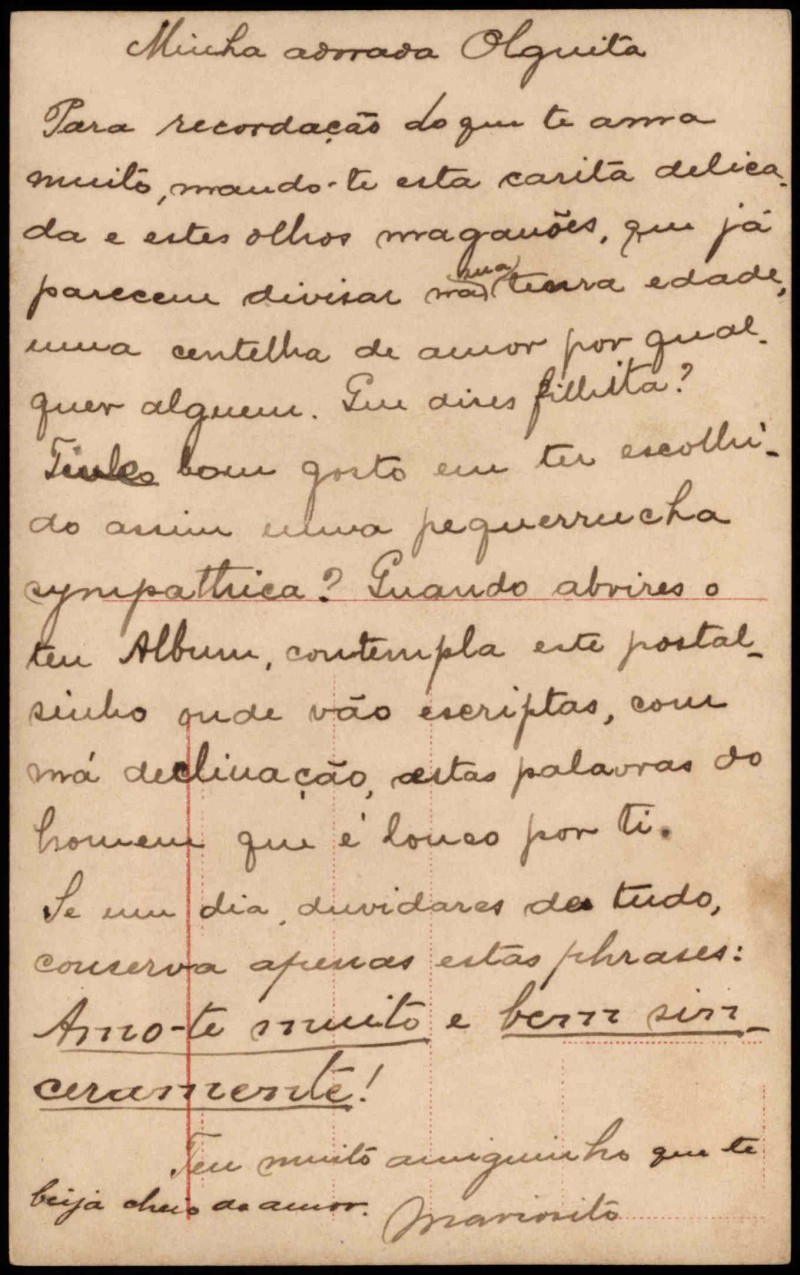 Minha adorada Olguita
Para recordação do que te ama
muito, mando-te esta carita delica-
da e estes olhos maganões, que já
parecem divisar na sua tenra edade,
uma centelha de amor por qual-
quer alguem. Que dizes filhita?
Tenho bom gosto em ter escolhi-
do assim uma pequerrucha
sympathica? Quando abrires o
teu Album, contempla este postal-
sinho onde vão escriptas, com
má declinação, estas palavras do
homem que é louco por ti.
Se um dia, duvidares de tudo,
conserva apenas estas phrases:
Amo-te muito e bem sin-
ceramente!
Teu muito amiguinho que te
beija cheio de amor. Mariosito